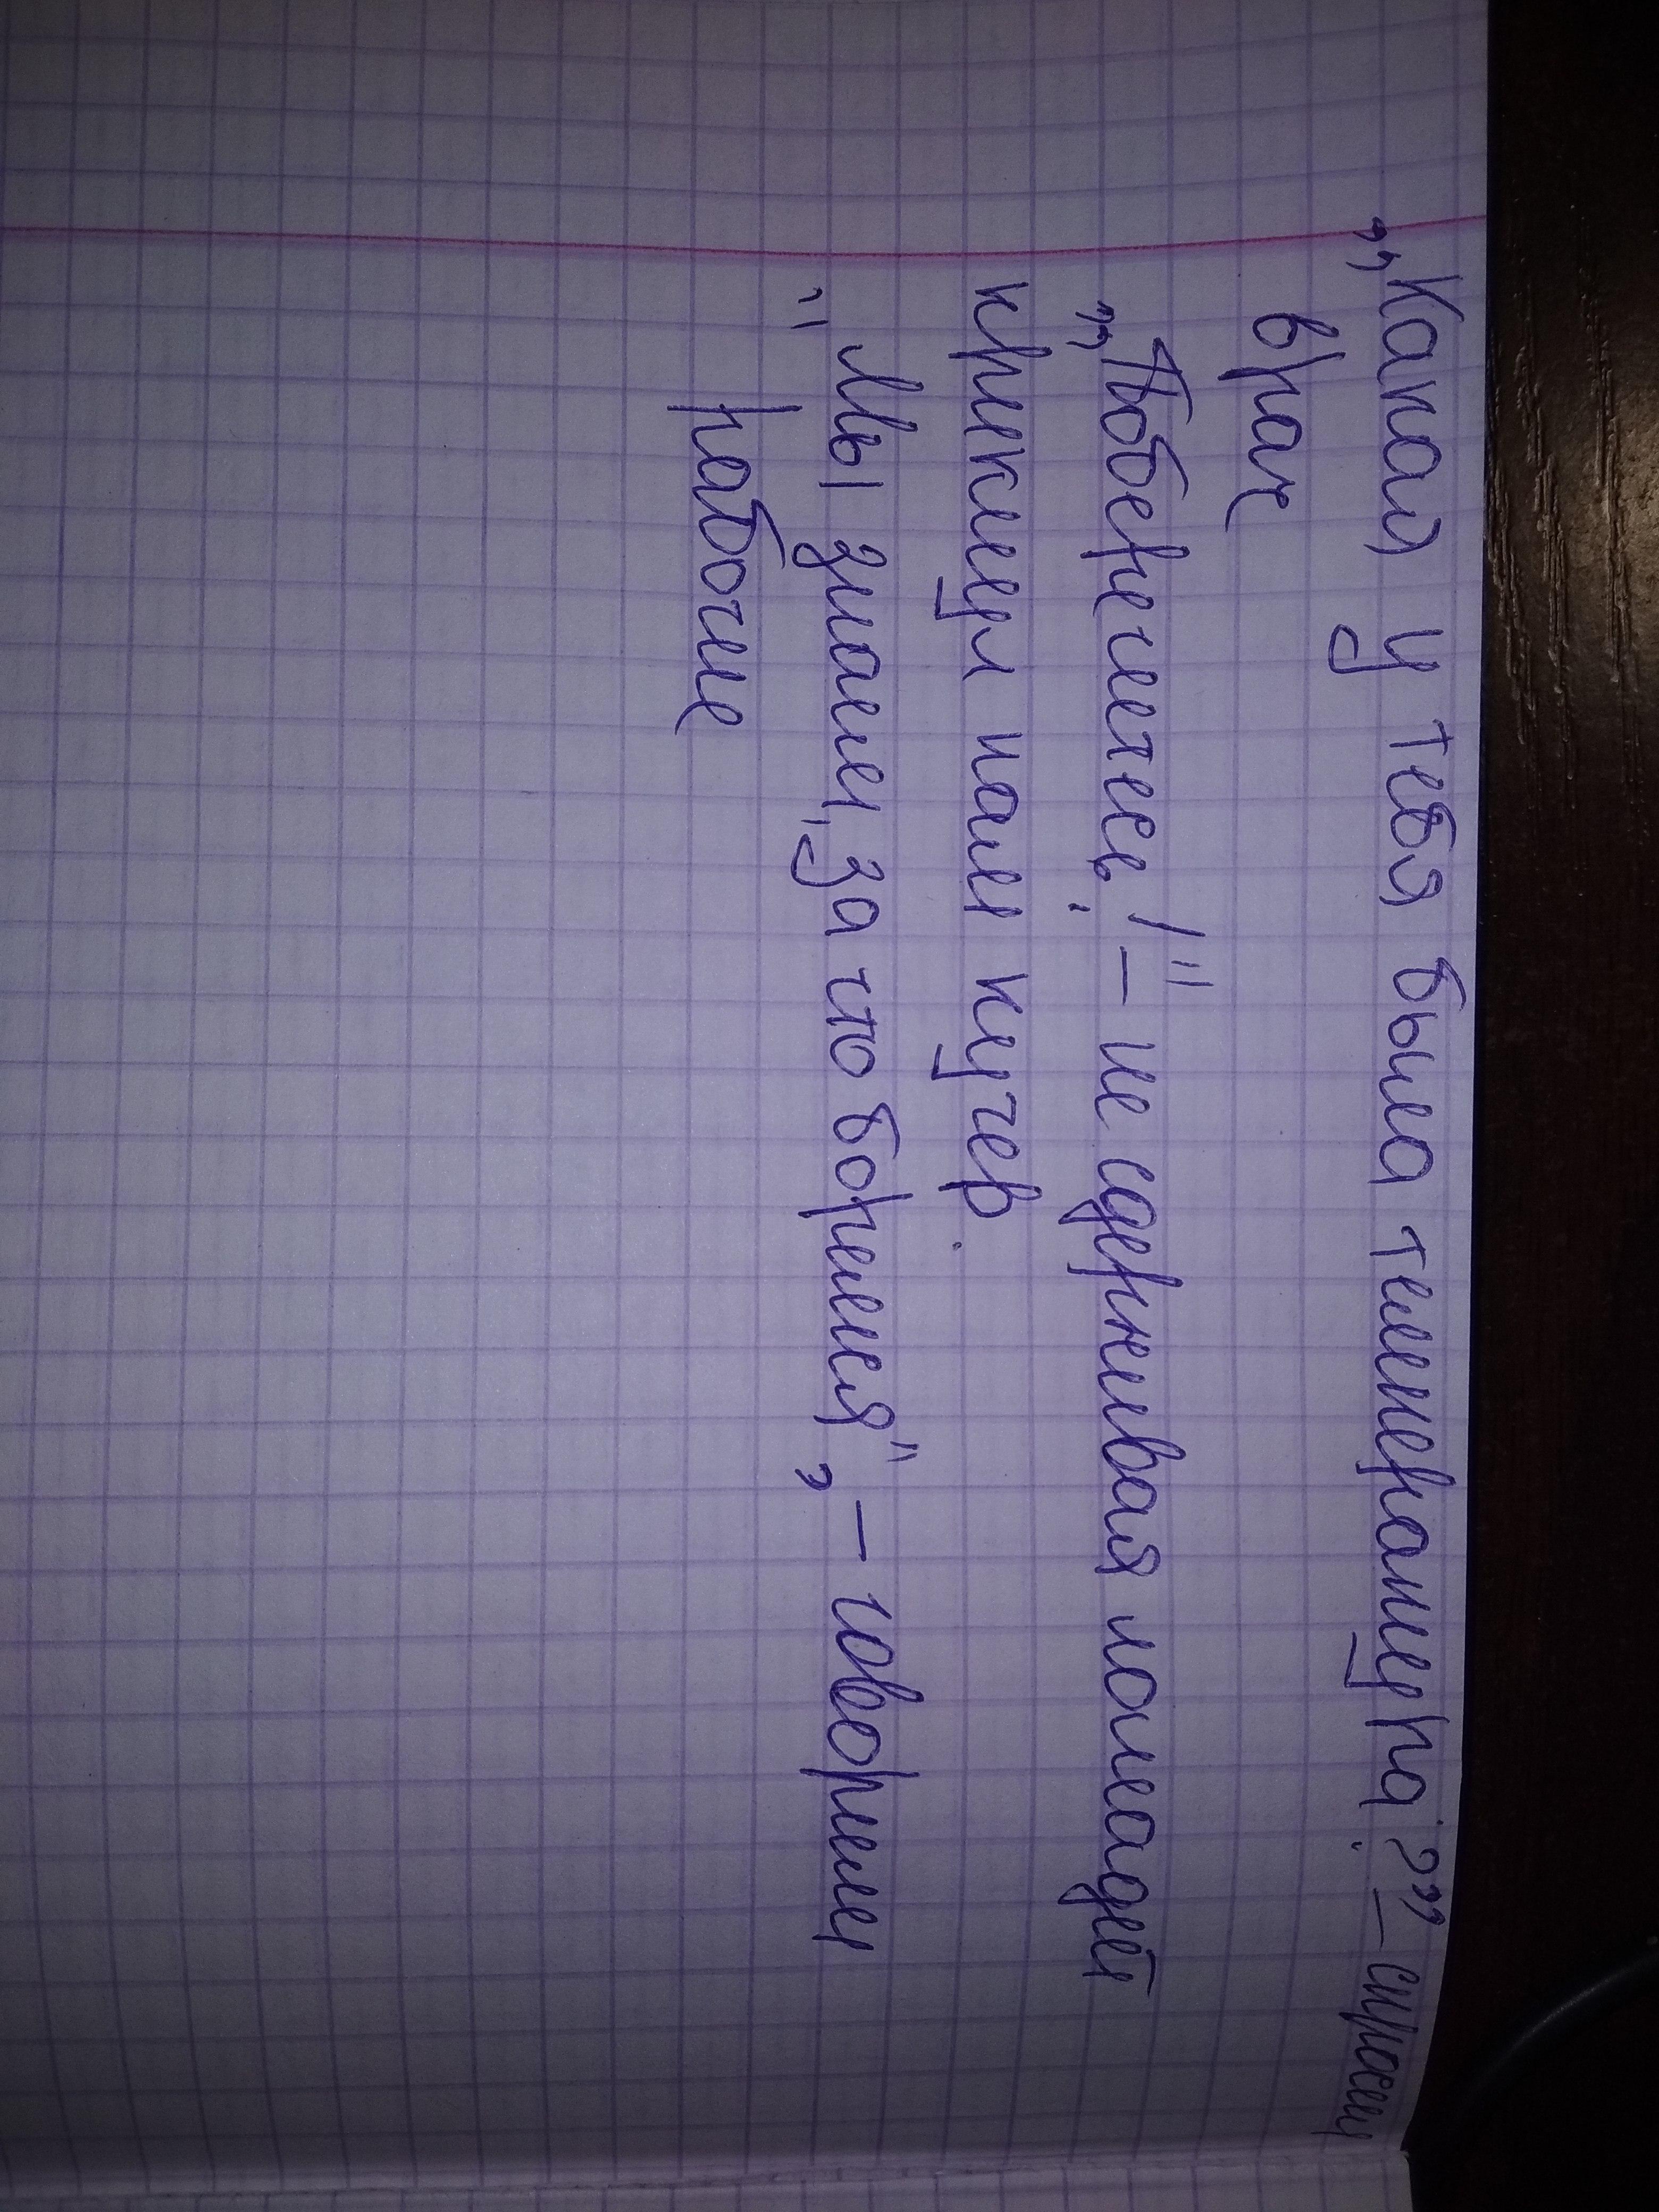 „Какая у тебя была температура?” – спросил
врач
„Поберегитесь!" – не сдерживая лошадей
крикнул нам кучер.
"Мы знаем, за что боремся", – говорили
рабочие